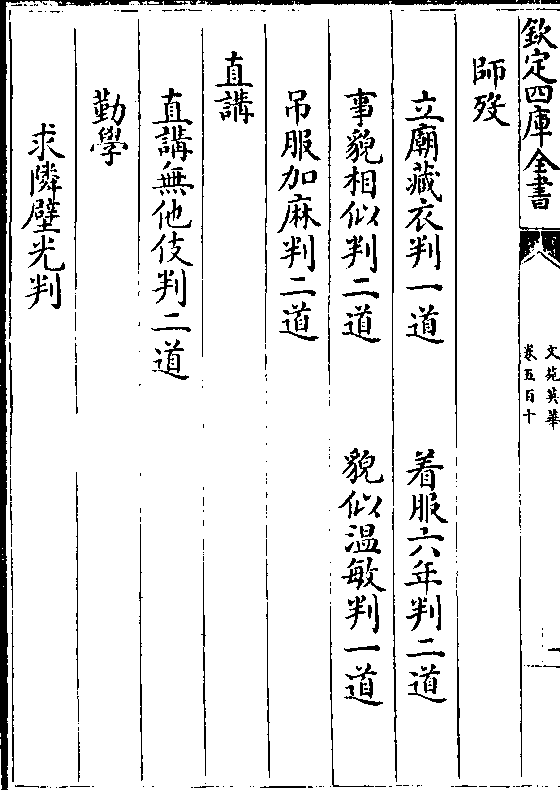 欽定四庫全書
文苑英華
卷五百十
師歿
立廟藏衣判一道 着服六年判二道
事貌相似判二道 貌似温敏判一道
吊服加麻判二道
直講
直講無他伎判二道
勤學
求隣壁光判